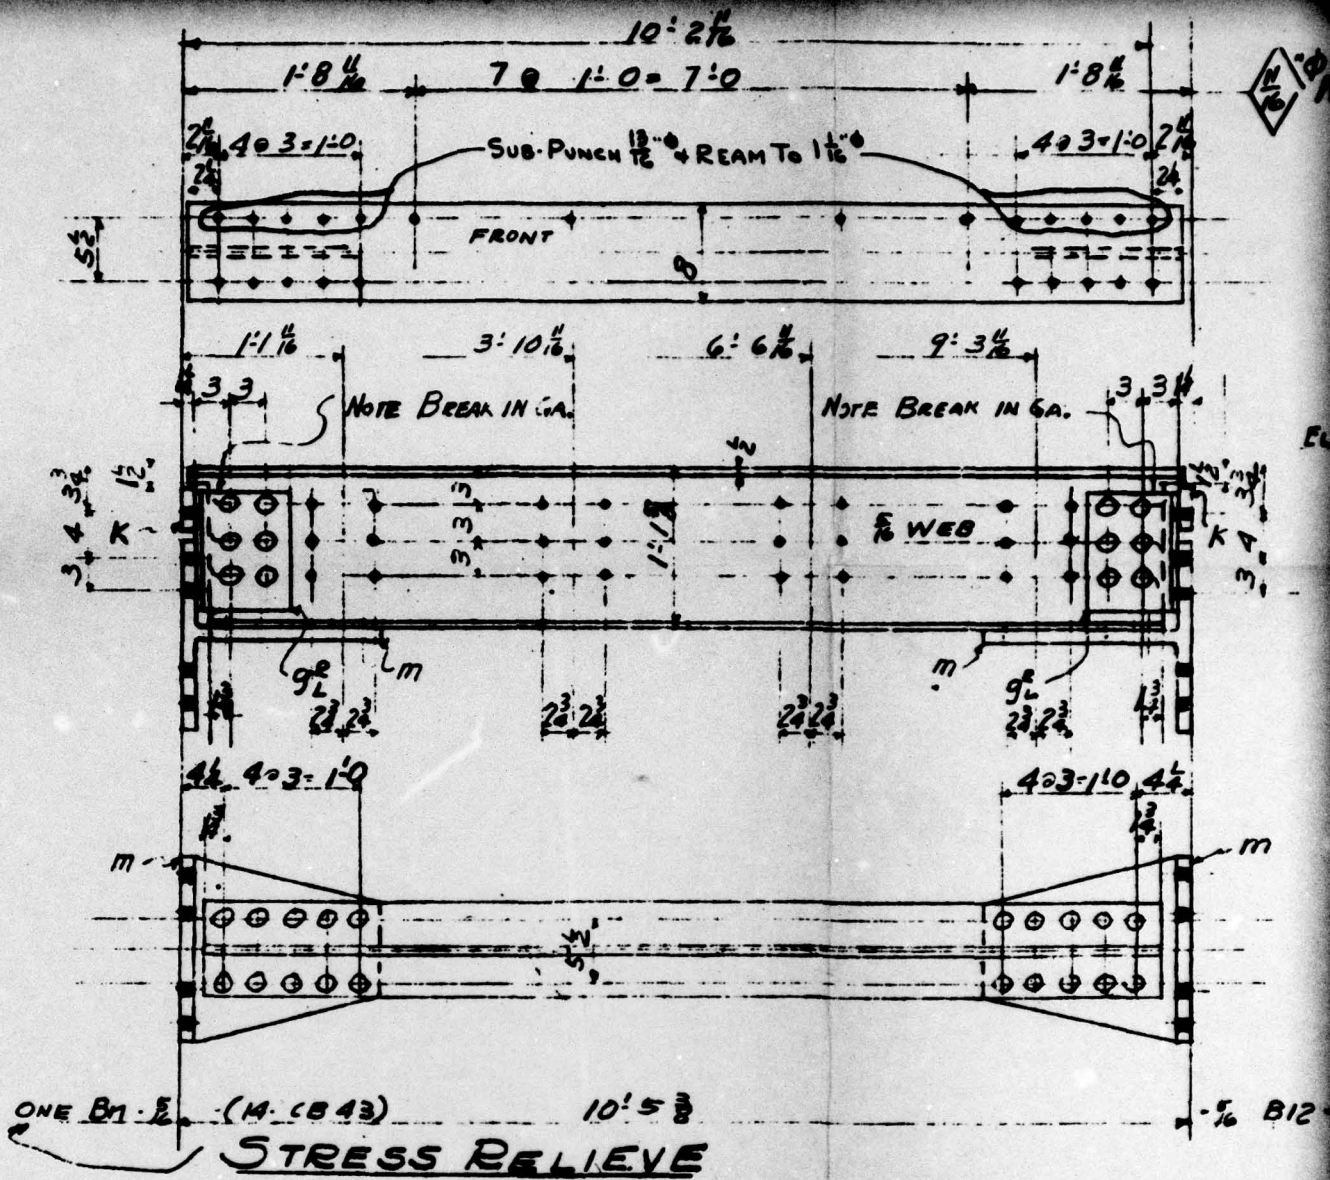 10'-2 11/16
1'-8 11/16 7 @ 1'-0 = 7'-0 1'-8 11/16
11/16"ø
2 11/16 4@3=1'-0 SUB-PUNCH 13/16"ø & REAM TO 1 1/16"ø 4@3=1'-0 2 11/16
2 1/4 2 1/4
5 1/2 FRONT 8
1'-1 11/16 3'-10 11/16 6'-6 11/16 9'-3 11/16
3 3 NOTE BREAK IN GA. NOTE BREAK IN GA. 3 3
3 3/4 1 1/2 1/2 1 1/2 3 3/4
4 K 3 3 5/16 WEB K 4
3 3
m m
g R L g R L
2 3/4 2 3/4 2 3/4 2 3/4 2 3/4 2 3/4 2 3/4 2 3/4
4 1/4 4@3=1'-0 4@3=1'-0 4 1/4
1 3/4 1 3/4
m m
5 1/2
ONE BM - 5/16 (14 CB 43) 10'-5 3/8 - 5/16 B12
STRESS RELIEVE